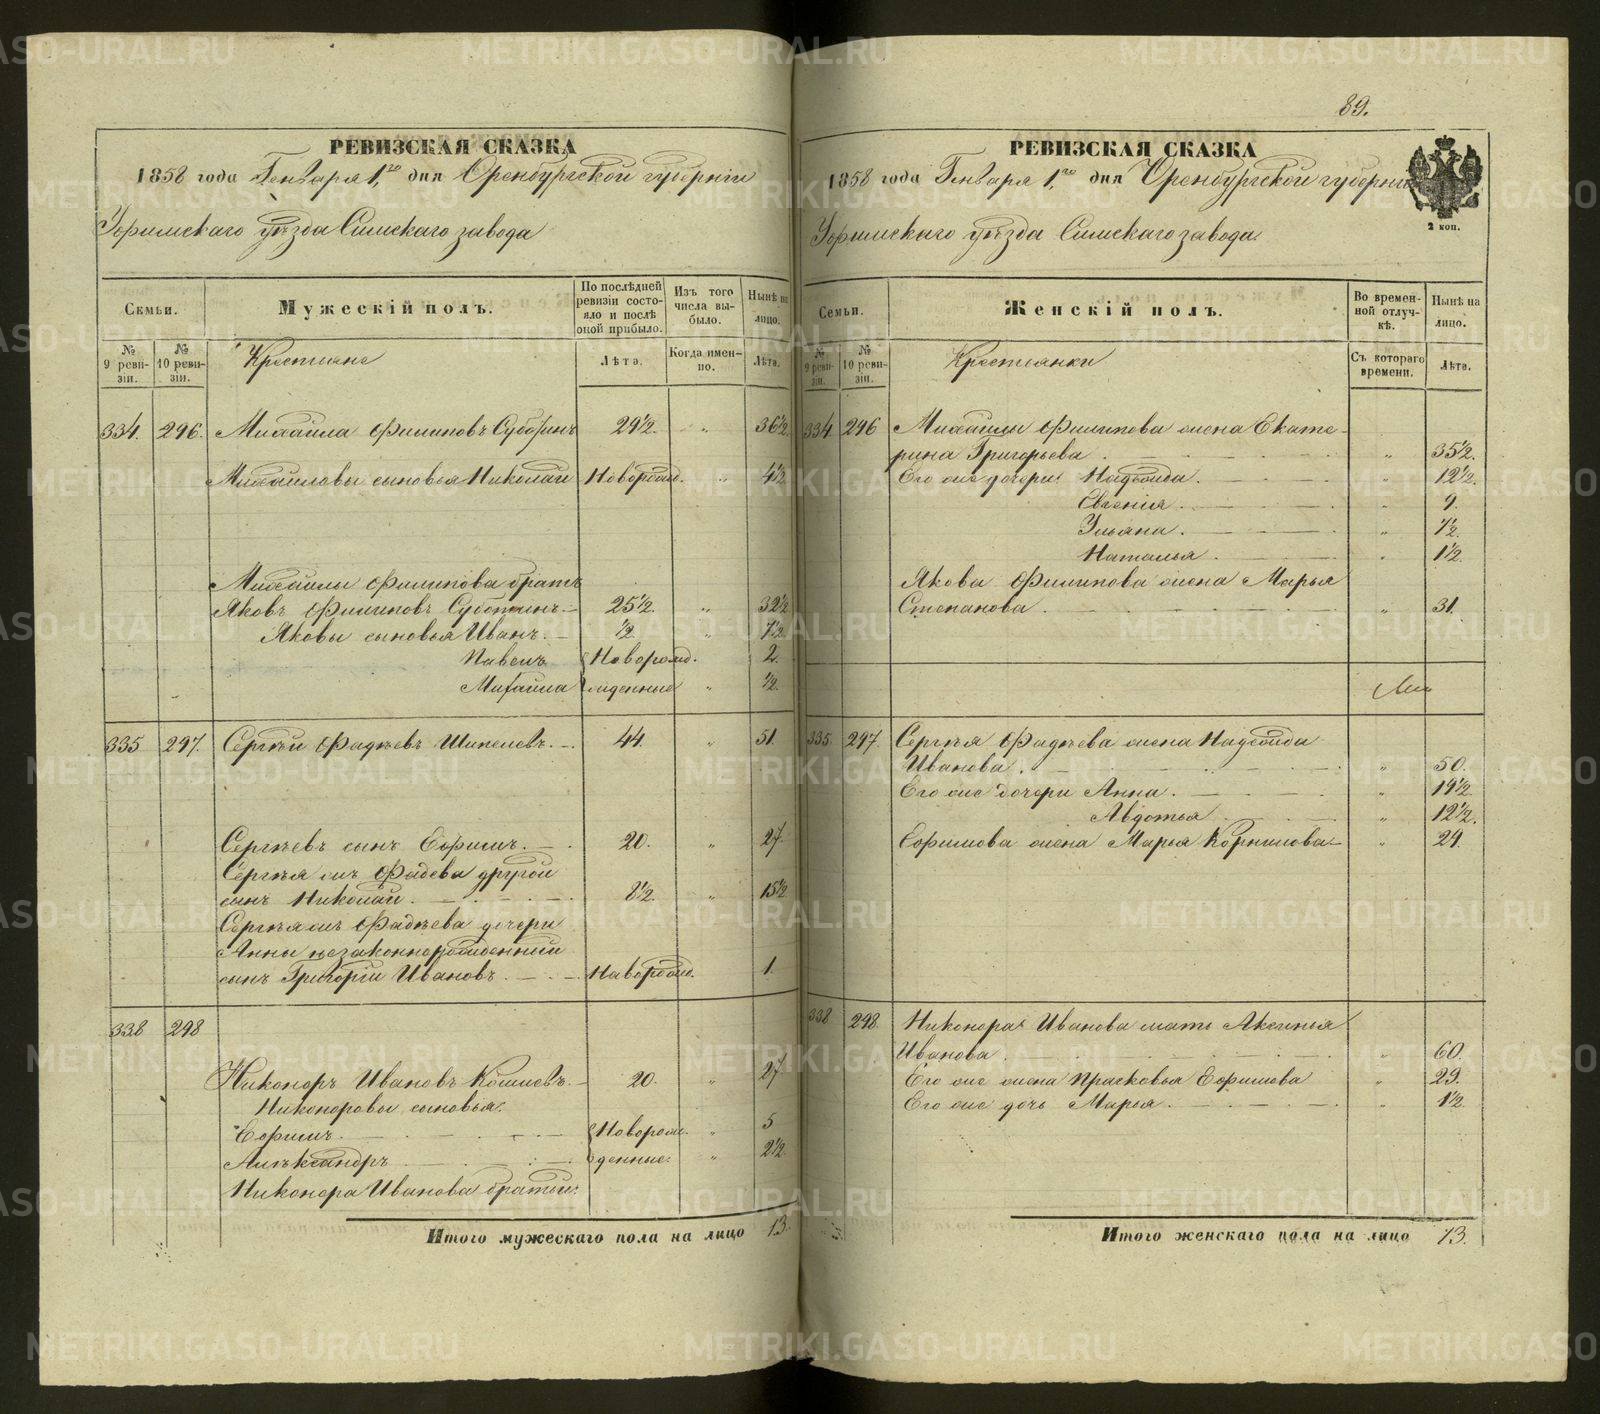 89.
РЕВИЗСКАЯ СКАЗКА
1858 года Генваря 1го дня Оренбургской губерніи
Уфимскаго уѣзда Симскаго завода
Семьи.
Мужескій полъ.
По послѣдней ревизіи состояло и послѣ оной прибыло.
Изъ того числа выбыло.
Нынѣ на лицо.
№ 9 ревизіи.
№ 10 ревизіи.
Крестьяне
Лѣта.
Когда именно.
Лѣта.
334. 296. Михаила Филиповъ Субботинъ 29½. „ 36½
Михаиловы сыновья Николай Новорожд. „ 4½
Михаилы Филипова братъ
Яковъ Филиповъ Субботинъ. 25½. „ 32½
Яковы сыновья Иванъ. ½ „ 7½
Павелъ Новорож- 2.
Михаила жденные „ ½.
335 297. Сергѣй Фадѣевъ Шипелевъ. 44. „ 51.
Сергѣевъ сынъ Ефимъ. 20. „ 27.
Сергѣя жъ Фадеева другой
сынъ Николай. 8½. „ 15½
Сергѣя жъ Фадѣева дочери
Анны незаконнорожденный
сынъ Григорій Ивановъ. Новорожд. 1.
338 298
Никоноръ Ивановъ Кошелевъ. 20. „ 27
Никоноровы сыновья:
Ефимъ. Новорож- „ 5
Алѣксандръ денные. „ 2½
Никонора Иванова братья:
Итого мужескаго пола на лицо 13.
РЕВИЗСКАЯ СКАЗКА
1858 года Генваря 1го дня Оренбургской губерніи
2 коп.
Уфимскаго уѣзда Симскаго завода.
Семьи.
Женскій полъ.
Во временной отлучкѣ.
Нынѣ на лицо.
№ 9 ревизіи.
№ 10 ревизіи.
Крестьянки
Съ котораго времени.
Лѣта.
334 296 Михаилы Филипова жена Екате-
рина Григорьева. „ 35½.
Его же дочери: Надежда. „ 12½.
Евгенія. „ 9.
Ульяна. „ 7½.
Наталья. „ 1½.
Якова Филипова жена Марья
Степанова. „ 31.
335. 297. Сергѣя Фадѣева жена Надежда
Иванова. „ 50.
Его же дочери Анна. „ 19½
Авдотья „ 12½.
Ефимова жена Марья Корнилова „ 24.
338 298. Никонора Иванова мать Аксинья
Иванова. „ 60.
Его же жена Прасковья Ефимова „ 29.
Его же дочь Марья. „ 1½.
Итого женскаго пола на лицо 13.
METRIKI.GASO-URAL.RU